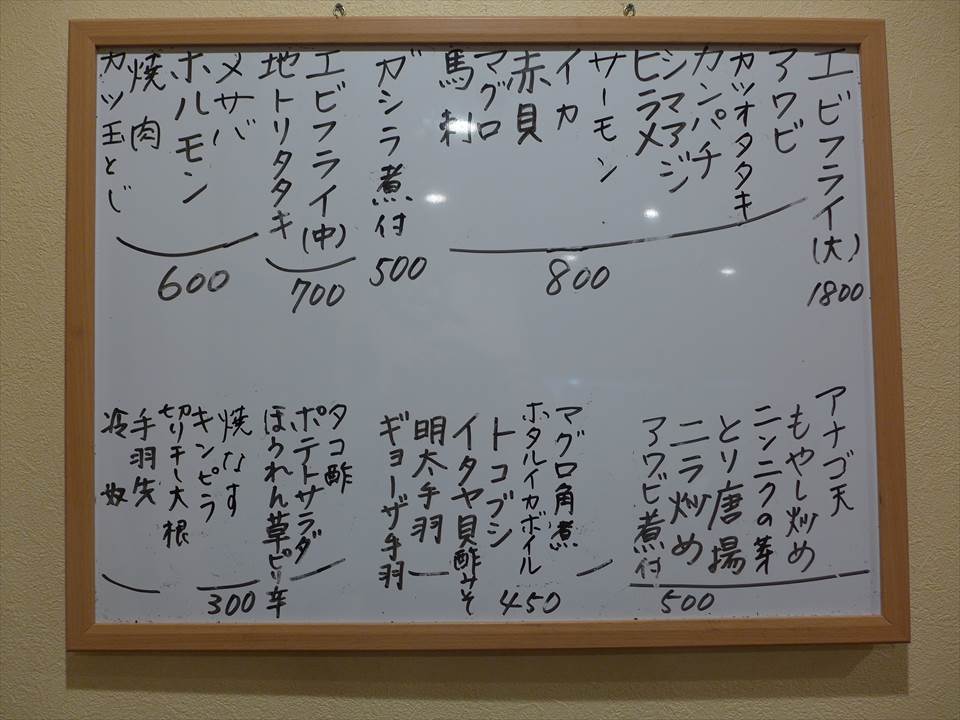 エビフライ(大)
1800
アワビ
カツオタタキ
カンパチ
シマアジ
ヒラメ
サーモン
イカ
赤貝
マグロ
馬刺
800
ガシラ煮付
500
エビフライ(中)
地トリタタキ
700
メサバ
ホルモン
焼肉
カツ玉とじ
600
アナゴ天
もやし炒め
ニンニクの芽
とり唐揚
ニラ炒め
アワビ煮付
500
マグロ角煮
ホタルイカボイル
トコブシ
イタヤ貝酢みそ
明太手羽
ギョーザ手羽
450
タコ酢
ポテトサラダ
ほうれん草ピリ辛
焼なす
キンピラ
切り干し大根
手羽先
冷奴
300